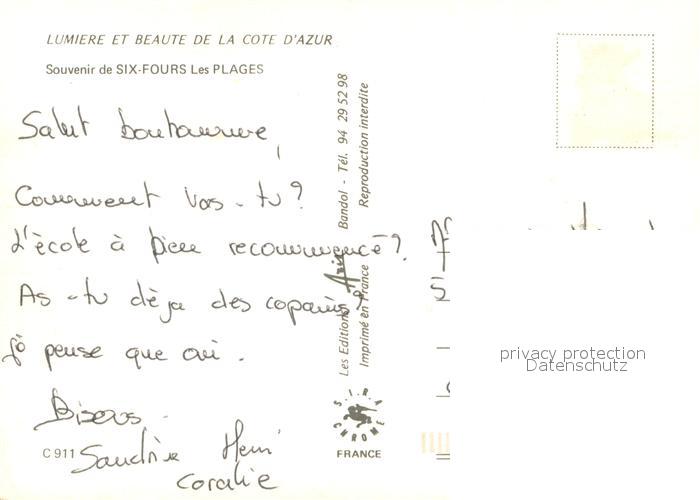 LUMIERE ET BEAUTE DE LA COTE D'AZUR
Souvenir de SIX-FOURS Les PLAGES
Salut bonhomme,
Comment vas-tu ?
L'école à bien recommencé ?
As-tu déja des copains ?
Je pense que oui.
Bisous
Sandrine Henri
Coralie
C 911
Les Editions Aris Bandol - Tél. 94 29 52 98
Imprimé en France Reproduction interdite
S.I.R.A.
CHROME
FRANCE
privacy protection
Datenschutz